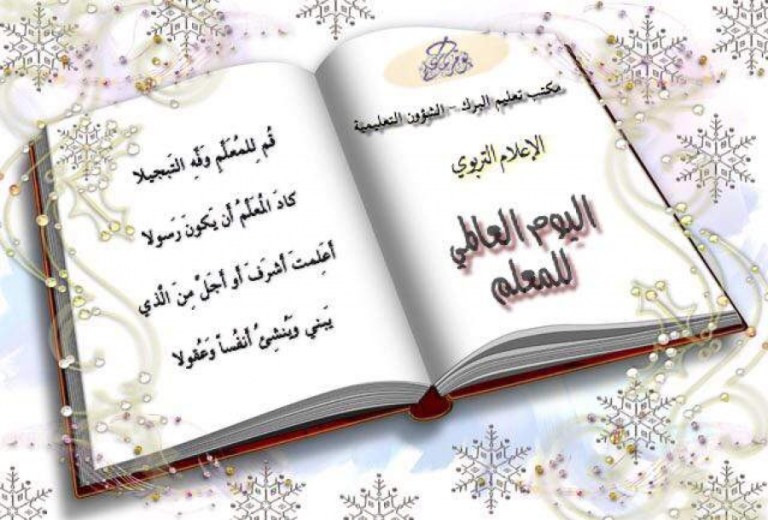 مكتب تعليم البرك - الشؤون التعليمية
الإعلام التربوي
اليوم العالمي
للمعلم
قُم لِلمُعَلِّمِ وَفِّهِ التَبجيلا
كادَ المُعَلِّمُ أَن يَكونَ رَسولا
أَعَلِمتَ أَشرَفَ أَو أَجَلَّ مِنَ الَّذي
يَبني وَيُنشِئُ أَنفُساً وَعُقولا